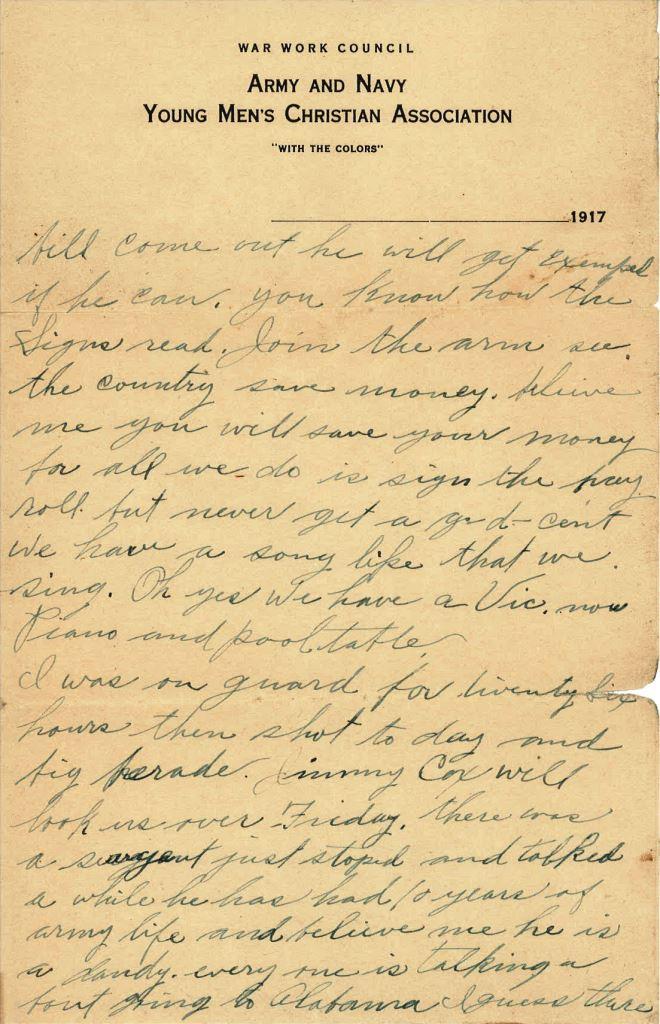 WAR WORK COUNCIL
ARMY AND NAVY
YOUNG MEN'S CHRISTIAN ASSOCIATION
"WITH THE COLORS"
1917
bill come out he will get exemped
if he can. you know how the
Signs read. Join the arm see.
the country save money. believe
me you will save your money
for all we do is sign the pay
roll. but never get a g-d- cent
We have a song like that we.
sing. Oh yes We have a Vic. now
Piano and pool table.
I was on guard for twenty six
hours then shot to day and
big perade. Jimmy Cox will
look us over Friday. there was
a sargent just stoped and talked
a while he has had 10 years of
army life and believe me he is
a dandy. every one is talking a
bout going to Alabama I guess there